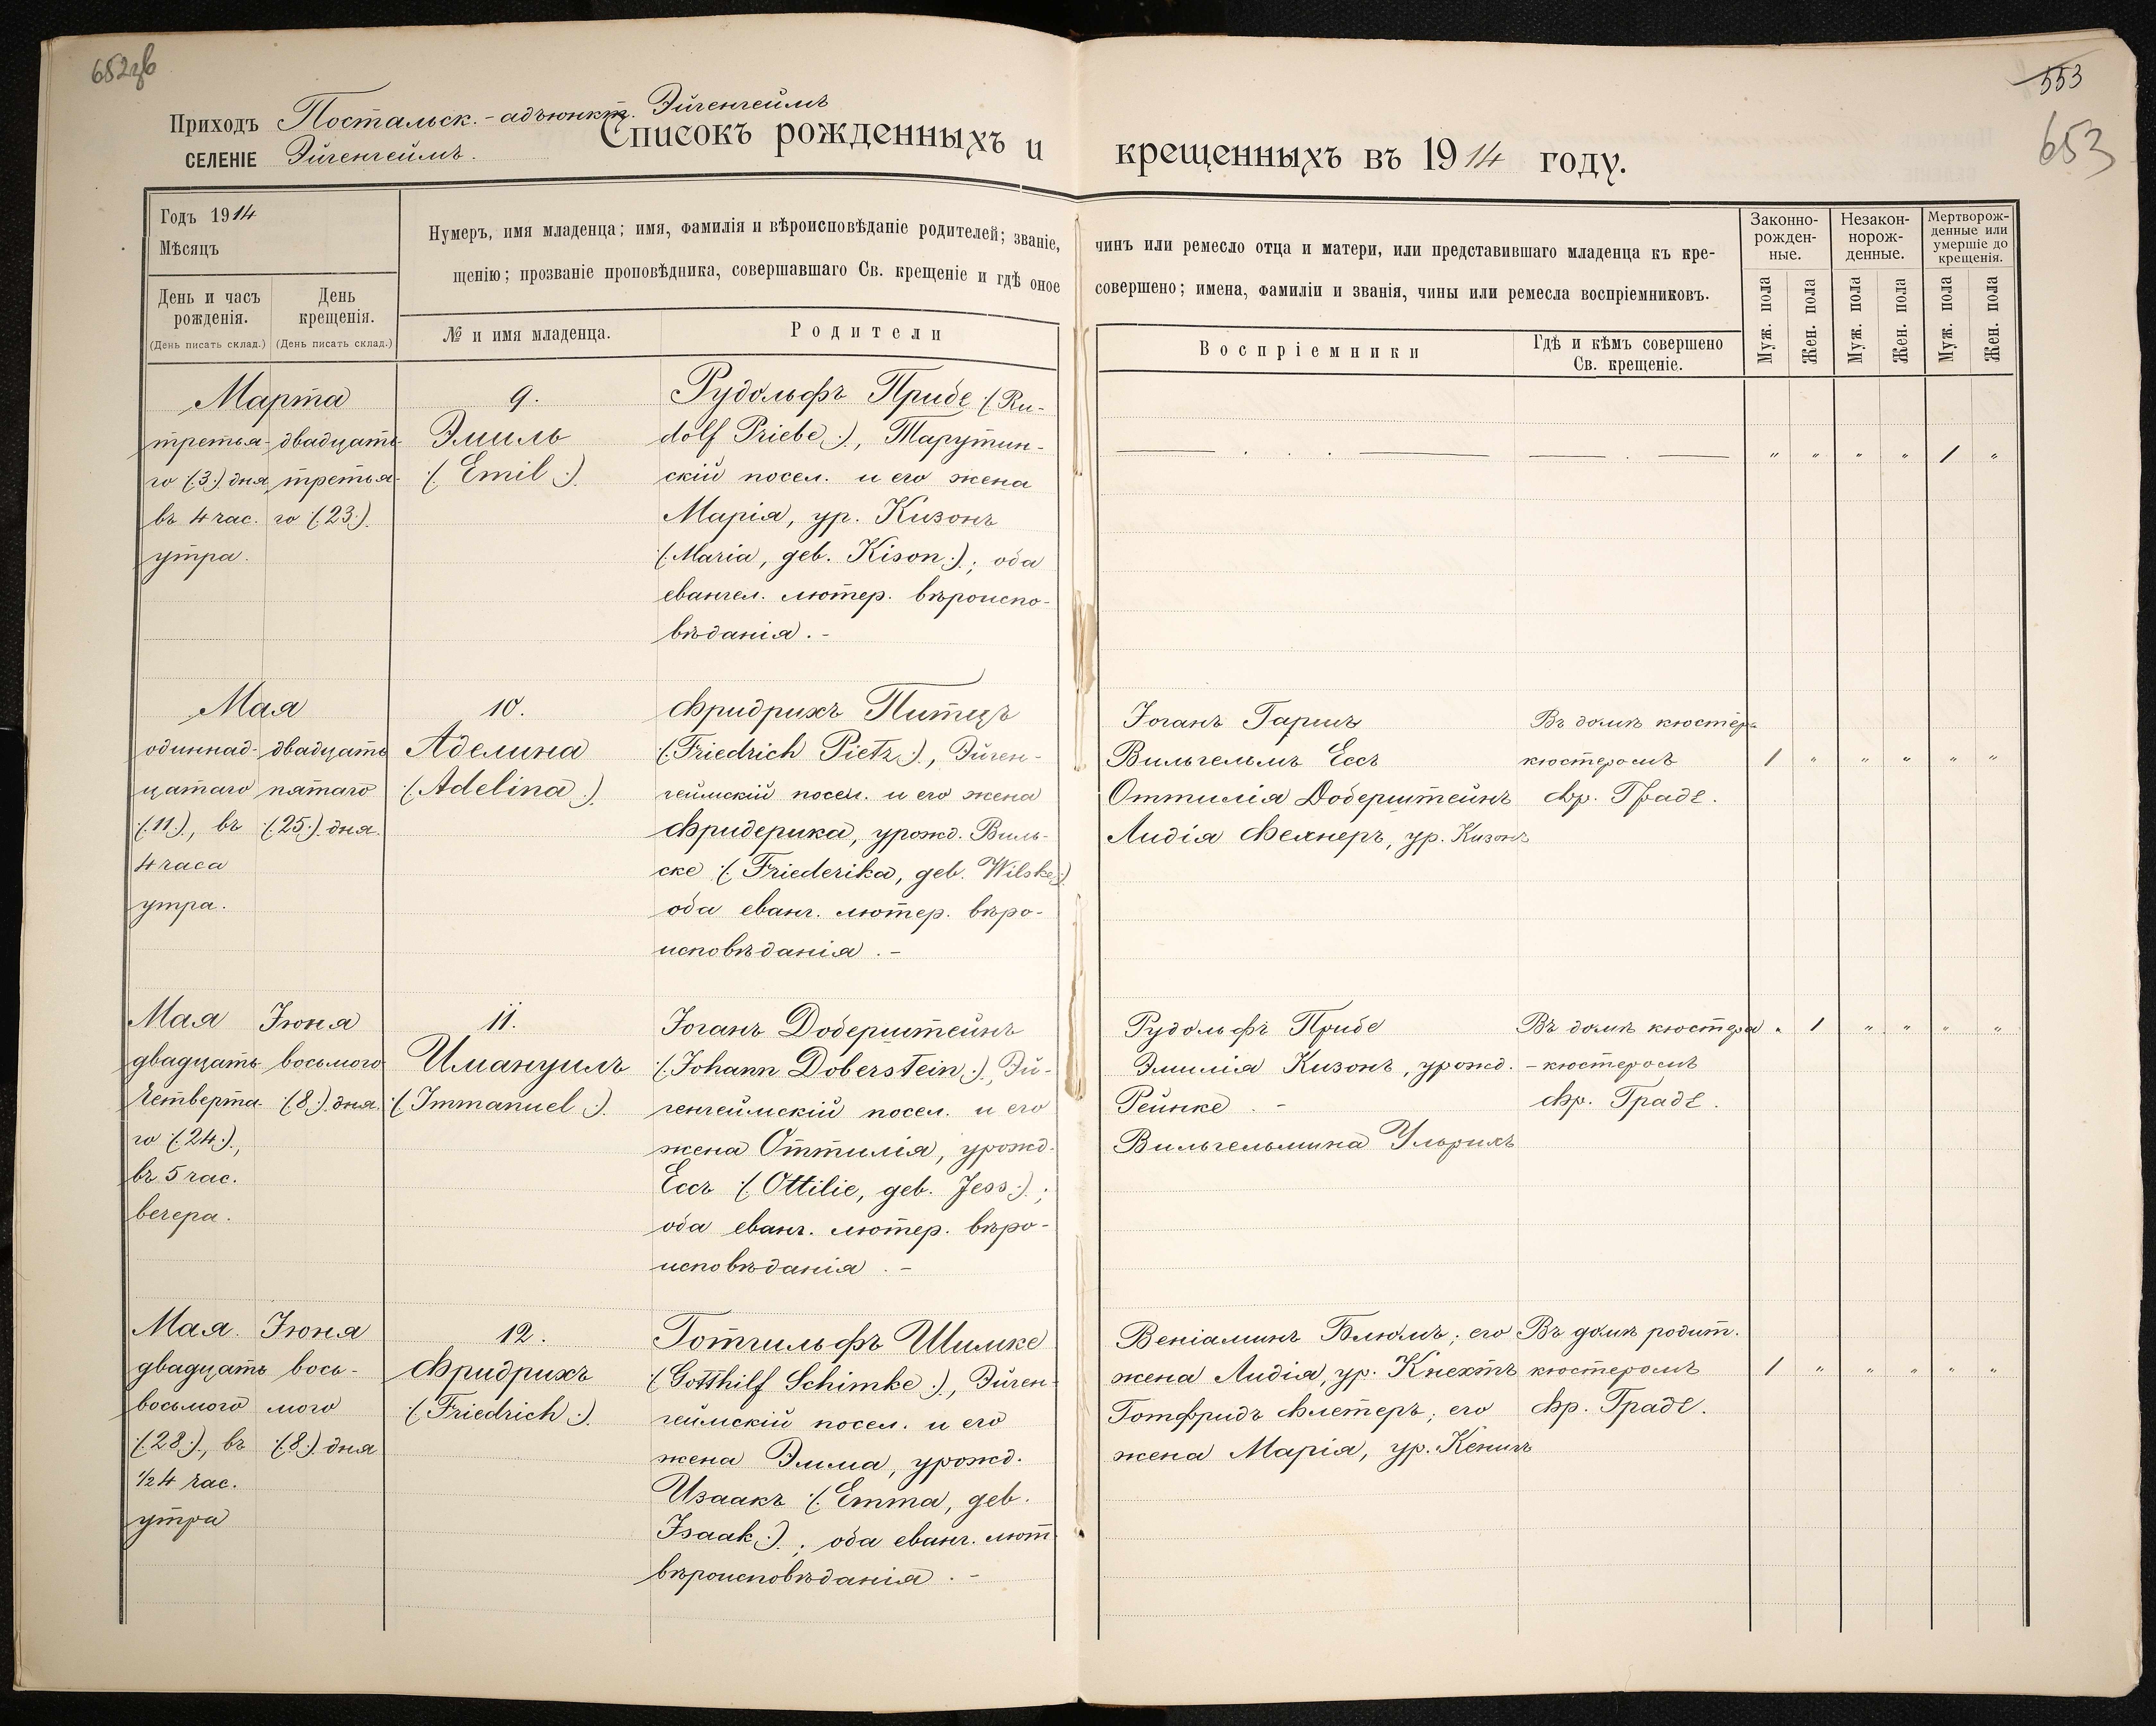 652об
553
653
Приходъ Постальск.-адъюнкт. Эйгенгеймъ
селеніе Эйгенгеймъ.
Списокъ рожденныхъ и крещенныхъ въ 1914 году.
Годъ 1914
Мѣсяцъ
День и часъ рожденія.
(День писать склад.)
День крещенія.
(День писать склад.)
Нумеръ, имя младенца; имя, фамилія и вѣроисповѣданіе родителей; званіе, чинъ или ремесло отца и матери, или представившаго младенца къ кре-
щенію; прозваніе проповѣдника, совершавшаго Св. крещеніе и гдѣ оное совершено; имена, фамиліи и званія, чины или ремесла воспріемниковъ.
№ и имя младенца.
Родители
Воспріемники
Гдѣ и кѣмъ совершено
Св. крещеніе.
Законно-
рожден-
ные.
Незакон-
норож-
денные.
Мертворож-
денные или
умершіе до
крещенія.
Муж. пола
Жен. пола
Муж. пола
Жен. пола
Муж. пола
Жен. пола
Марта
третья-
го (:3:) дня
въ 4 час.
утра.
двадцать
третья-
го (:23:).
9.
Эмиль
(:Emil:).
Рудольфъ Прибе (:Ru-
dolf Priebe:), Тарутин-
скій посел. и его жена
Марія, ур. Кизонъ
(:Maria, geb. Kison:); оба
евангел. лютер. вѣроиспо-
вѣданія.-
— . . . — — . —
" " " " 1 "
Мая
одиннад-
цатаго
(:11:), въ
4 часа
утра.
двадцать
пятаго
(:25:) дня.
10.
Аделина
(:Adelina:).
Фридрихъ Питцъ
(:Friedrich Pietz:), Эйген-
геймскій посел. и его жена
Фридерика, урожд. Виль-
ске (:Friederika, geb. Wilske:)
оба еванг. лютер. вѣро-
исповѣданія.-
Іоганъ Гаришъ
Вильгельмъ Ессъ
Оттилія Доберштейнъ
Лидія Фелнеръ, ур. Кизонъ
Въ домѣ кюстера
кюстеромъ
Фр. Граде.
1 " " " " "
Мая
двадцать
четверта-
го (:24:),
въ 5 час.
вечера.
Іюня
восьмого
(:8:) дня.
11.
Имануилъ
(:Immanuel:).
Іоганъ Доберштейнъ
(:Johann Doberstein:), Эй-
генгеймскій посел. и его
жена Оттилія, урожд.
Ессъ (:Ottilie, geb. Jess:);
оба еванг. лютер. вѣро-
исповѣданія.-
Рудольфъ Прибе
Эмилія Кизонъ, урожд.
Рейнке.-
Вильгельмина Ульрихъ
Въ домѣ кюстера
- кюстеромъ
Фр. Граде.
" 1 " " " "
Мая.
двадцать
восьмого
(:28:), въ
½4 час.
утра
Іюня
вось-
мого
(:8:) дня
12.
Фридрихъ
(:Friedrich:).
Готгильфъ Шимке
(:Gotthilf Schimke:), Эйген-
геймскій посел. и его
жена Эмма, урожд.
Изаакъ (:Emma, geb.
Isaak:).; оба еванг. лют
вѣроисповѣданія.-
Веніаминъ Блюмъ; его
жена Лидія, ур. Кнехтъ
Готфридъ Флетеръ; его
жена Марія, ур. Кенигъ
Въ домѣ родит.
кюстеромъ
Фр. Граде.
1 " " " " "